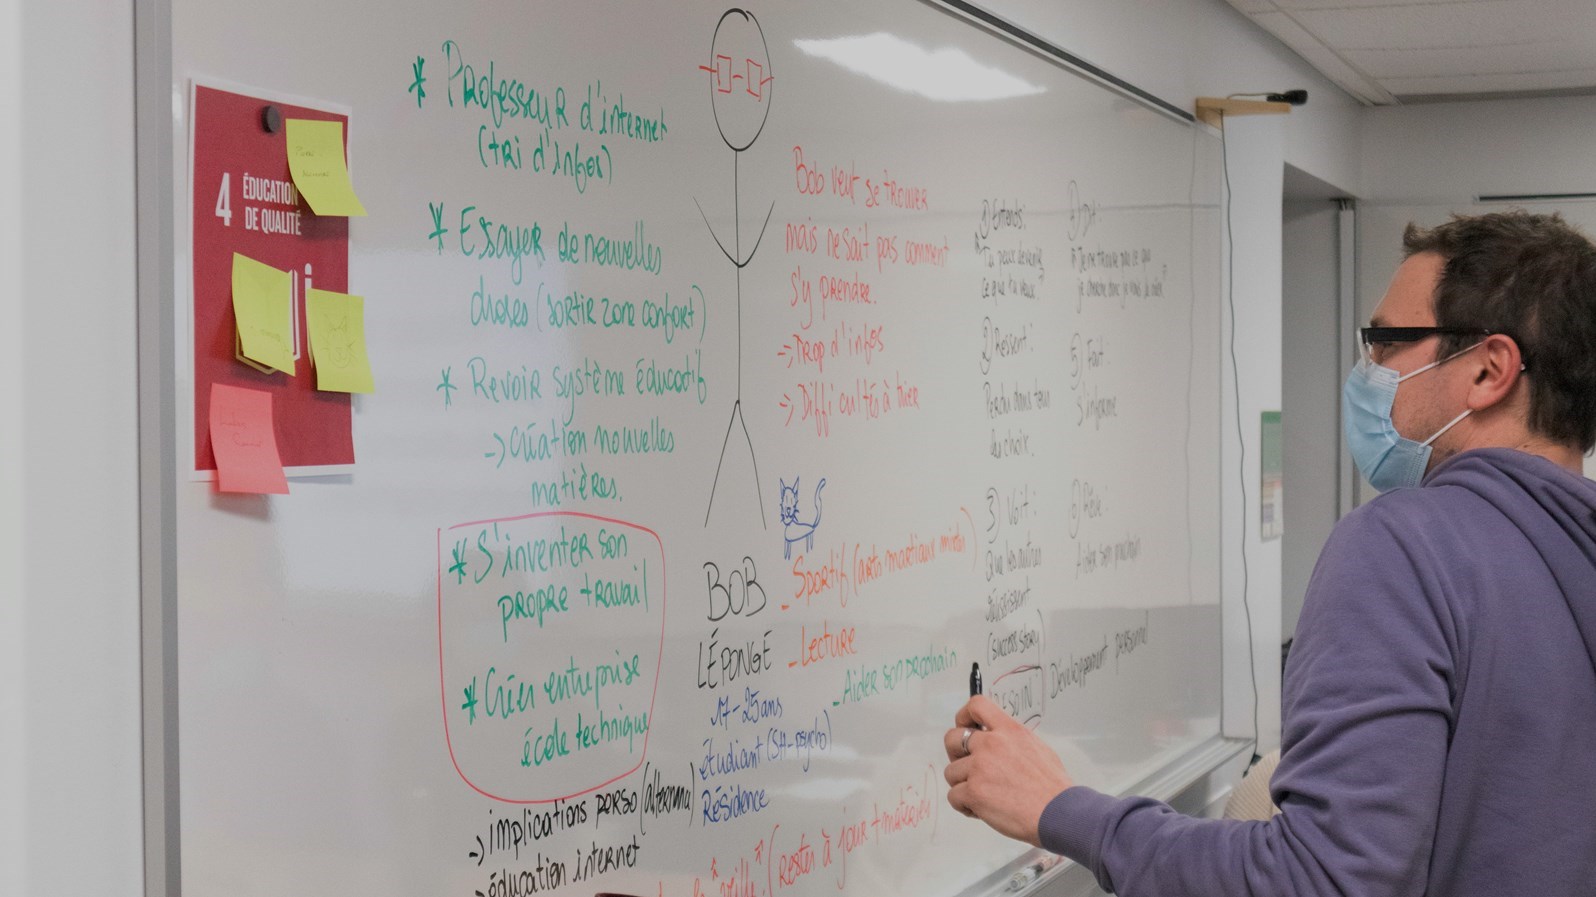 4 ÉDUCATION
DE QUALITÉ
* Professeur d'internet
(tri d'infos)
* Essayer de nouvelles
choses (sortir zone confort)
* Revoir système éducatif
-> Création nouvelles
matières.
* S'inventer son
propre travail
* Créer entreprise
école technique
-> implications perso (alternance)
-> éducation internet
BOB
LÉPONGE
17-25ans
étudiant (SH-psycho)
Résidence
Bob veut se trouver
mais ne sait pas comment
s'y prendre.
-> Trop d'infos
-> Difficultés à trier
- Sportif (arts martiaux mixtes)
- Lecture
- Aider son prochain
"veille" (rester à jour + matériel)
1) Entends:
"Tu peux devenir
ce que tu veux"
2) Ressent:
Perdu dans tout
du choix.
3) Voit:
Que les autres
réussissent
(success story)
BESOIN: Développement personnel
4) Dit:
"Je ne trouve pas ce que
je cherche donc je vais à
5) Fait:
S'informe
6) Rêve:
Aider son prochain